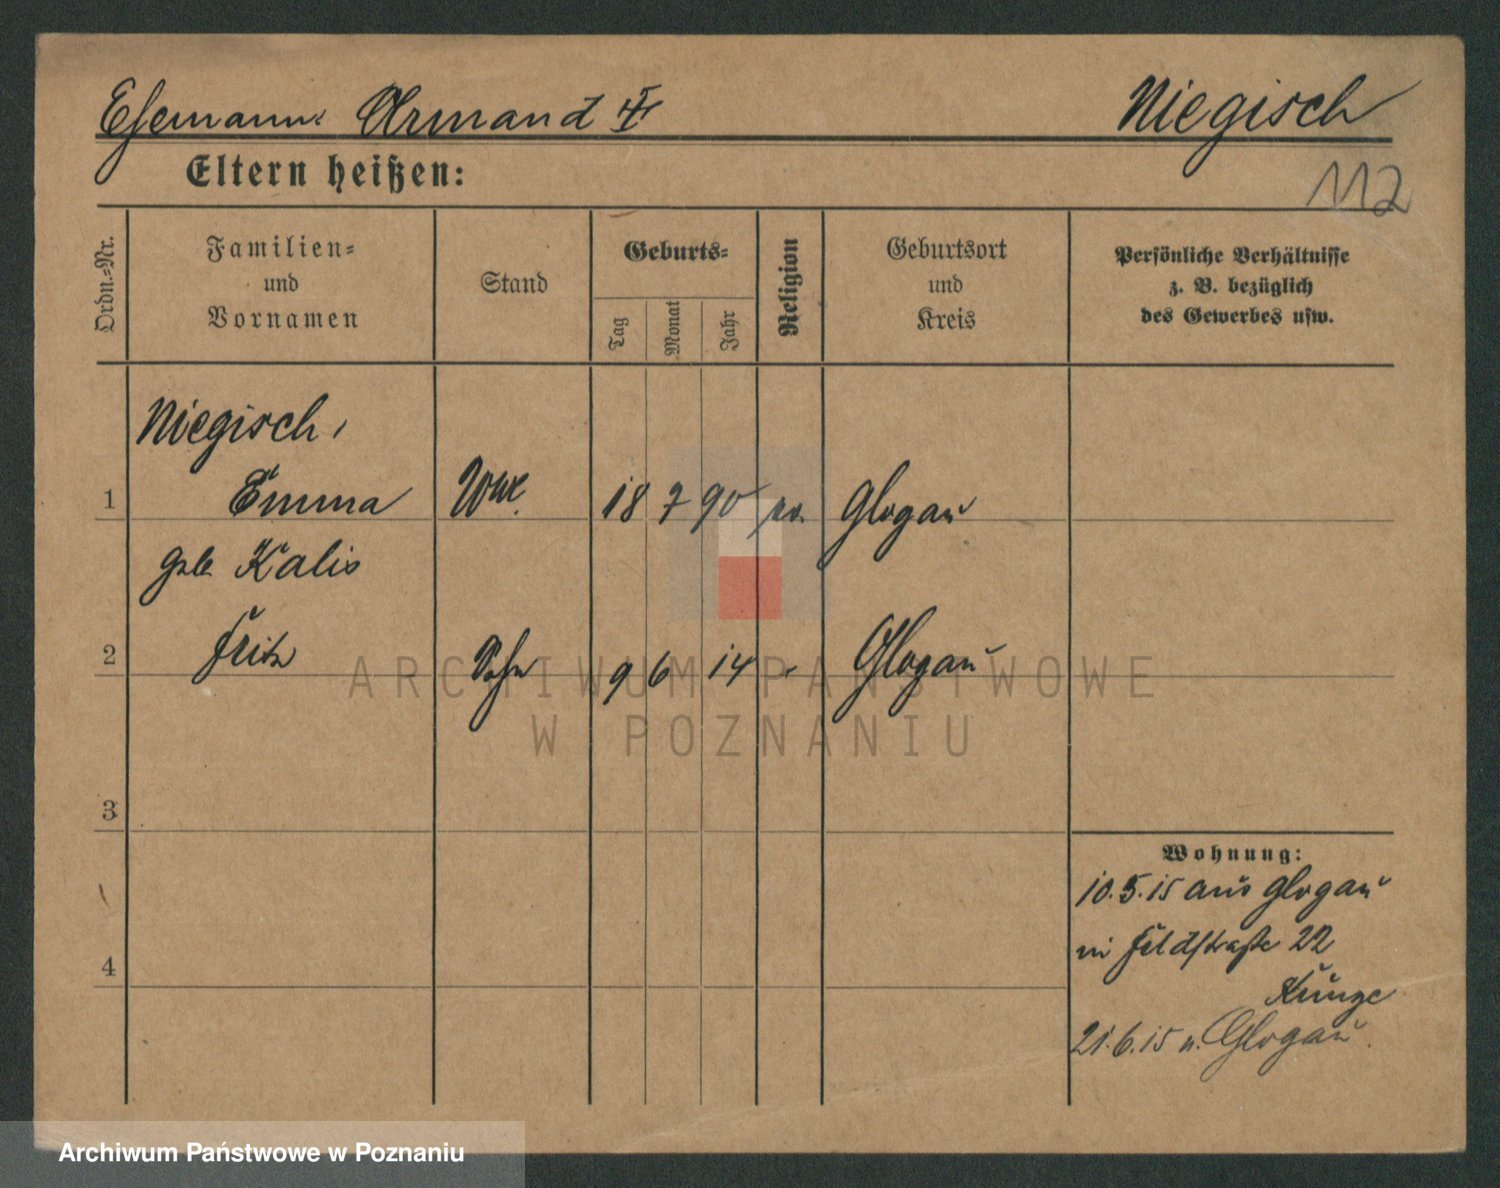 Ehemann Armand Niegisch
112
Eltern heißen:
Ordn.-Nr.
Familien-
und
Vornamen
Stand
Geburts-
Tag
Monat
Jahr
Religion
Geburtsort
und
Kreis
Persönliche Verhältnisse
z. B. bezüglich
des Gewerbes usw.
Niegisch,
1 Emma Wwe. 18 7 90 Glogau
geb Kalis
2 Fritz Sohn 9 6 14 " Glogau
3
4
Wohnung:
10.5.15 aus Glogau
in Feldstraße 22
Kunze
21.6.15 n. Glogau.
ARCHIWUM PAŃSTWOWE
W POZNANIU
Archiwum Państwowe w Poznaniu